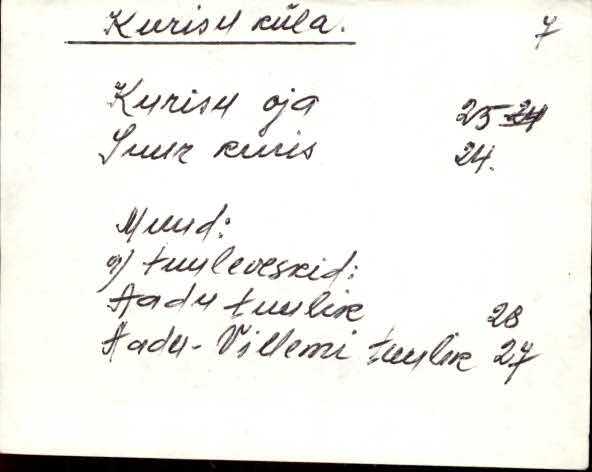 Kurisu küla. 7
Kurisu oja 25 24
Suur kuris 24.
Muud:
a) tuuleveskid:
Aadu tuulik 28
Aadu-Villemi tuulik 27